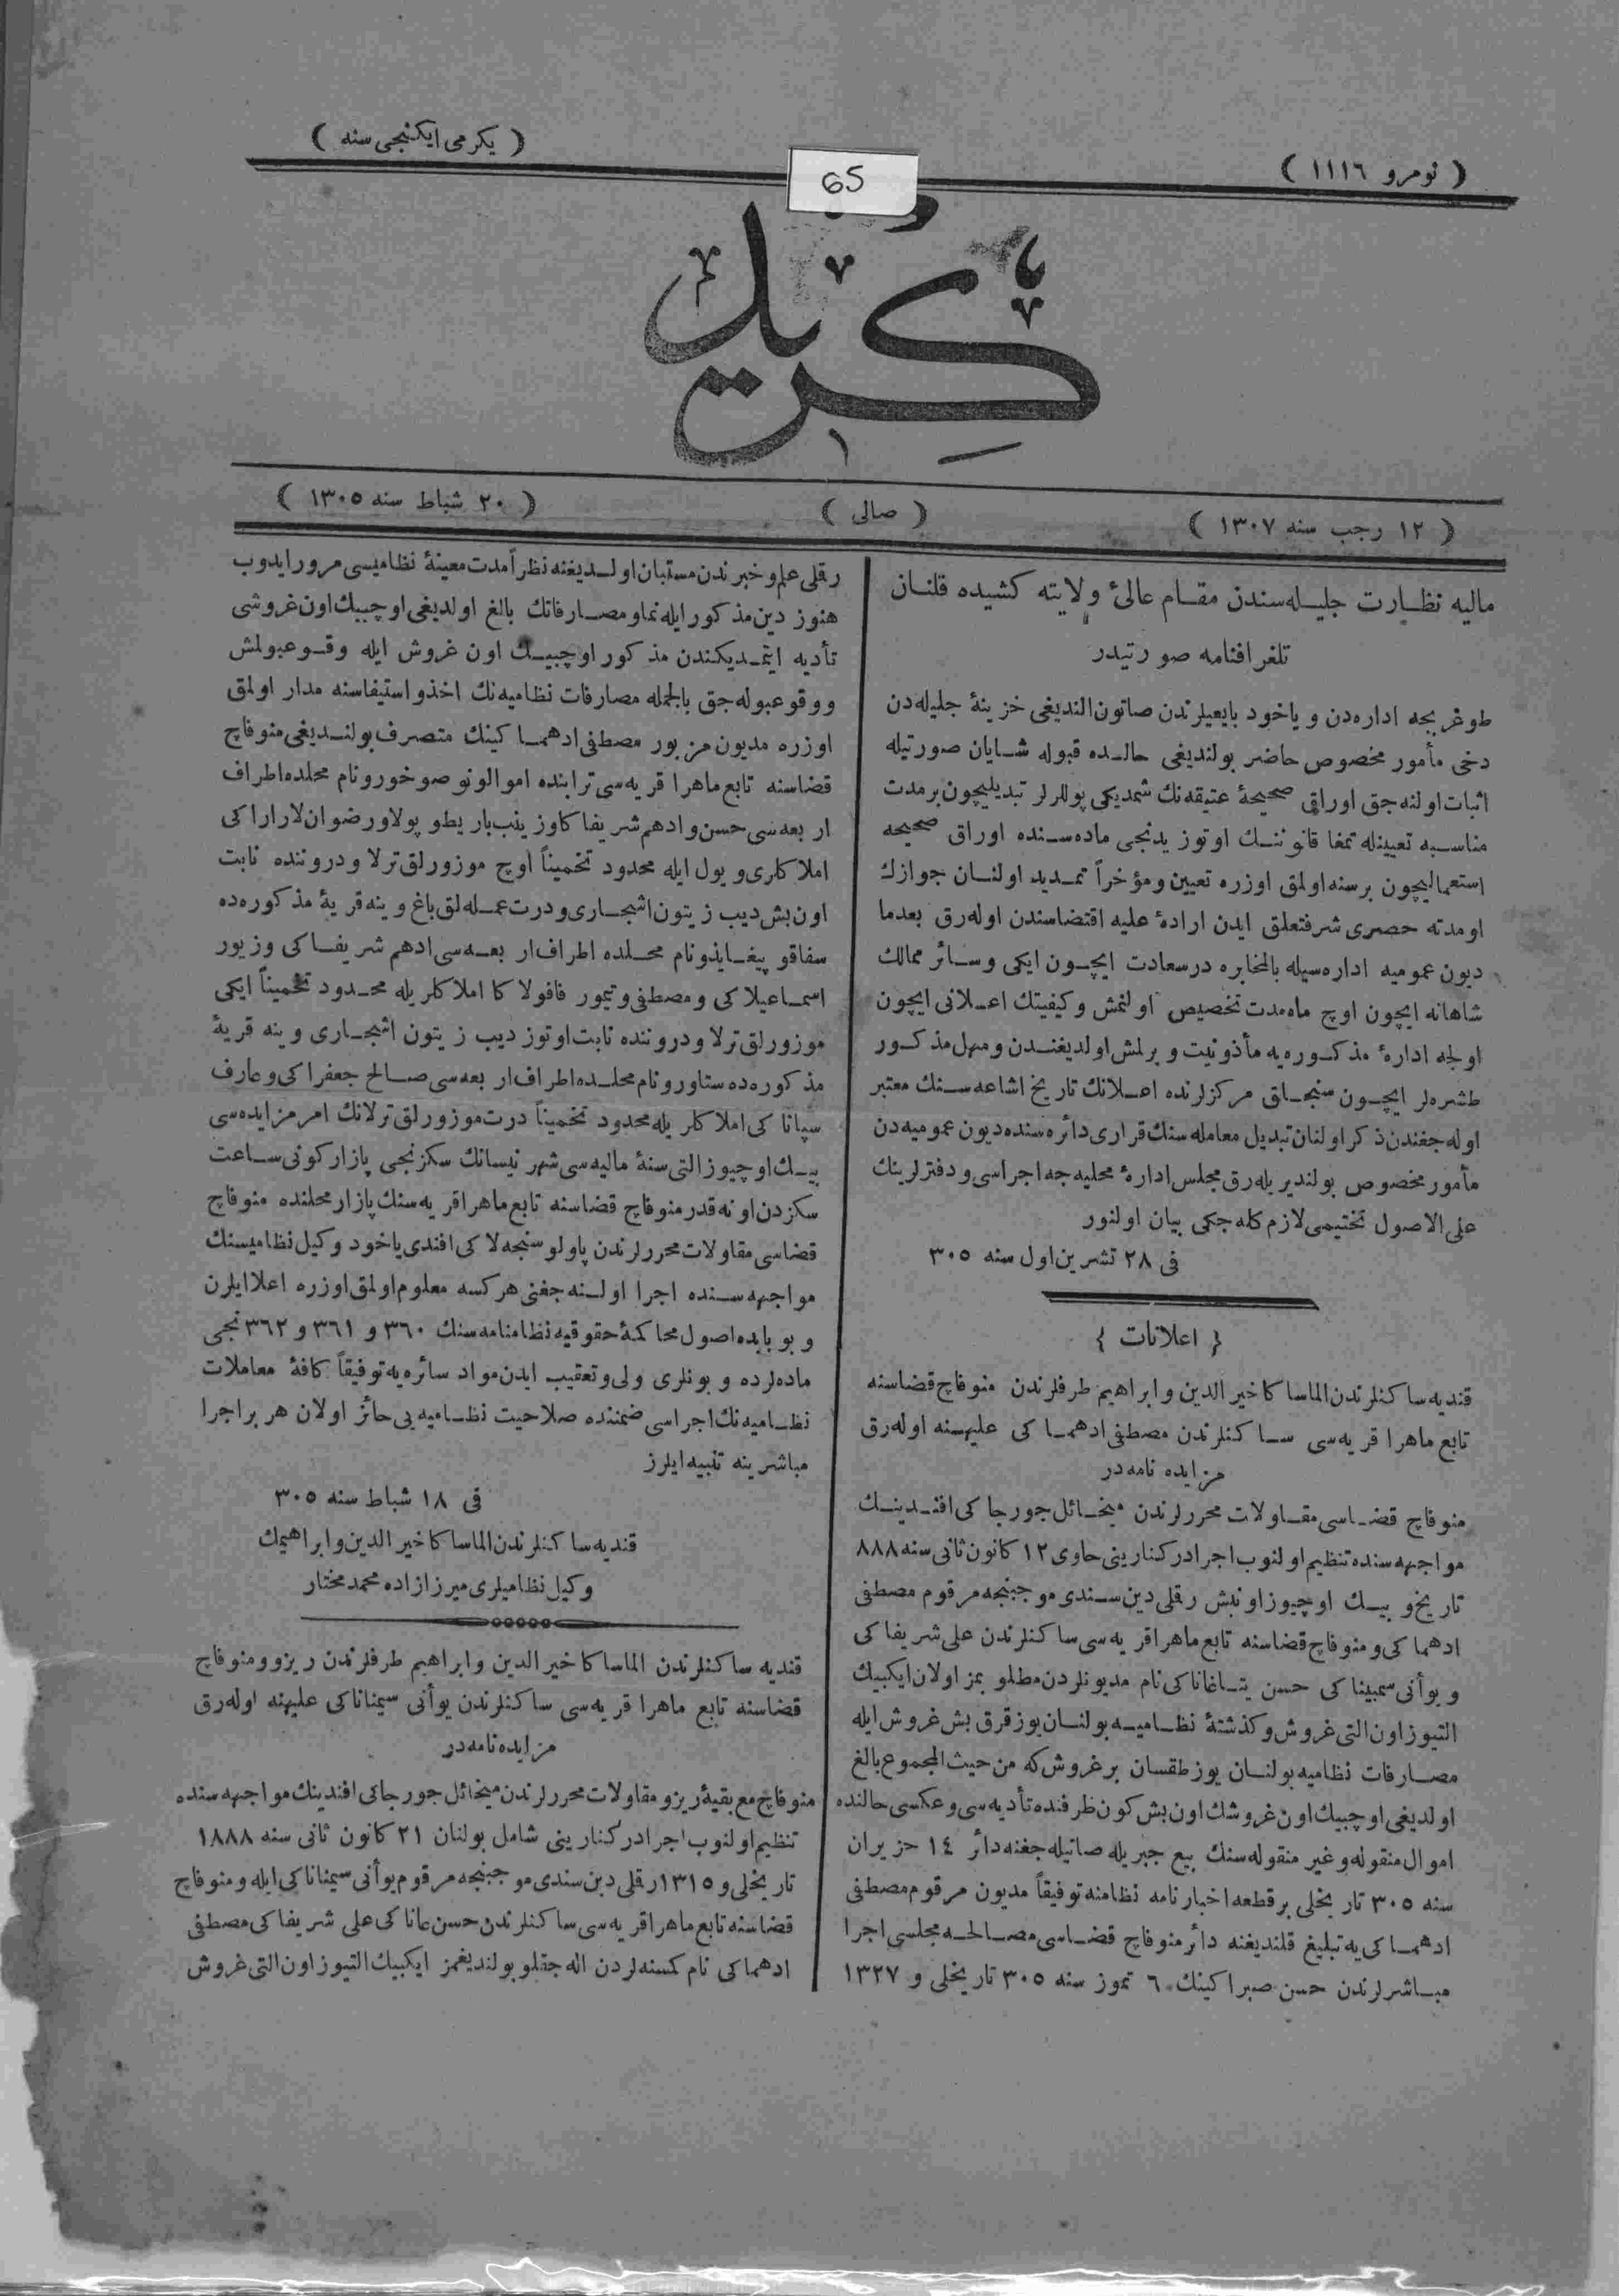 ( نومرو ١١١٦ )
( يكرمی ايكنجی سنه )
65
كريد
( ١٢ رجب سنه ١٣٠٧ )
( صالی )
( ٢٠ شباط سنه ١٣٠٥ )
ماليه نظارت جليله‌سندن مقام عالیٔ ولايته كشيده قلنان
تلغرافنامه صورتيدر
طوغريجه اداره‌دن و ياخود بايعيلرندن صاتون النديغی خزينۀ جليله‌دن
دخی مأمور مخصوص حاضر بولنديغی حالده قبوله شايان صورتيله
اثبات اولنه‌جق اوراق صحيحۀ عتيقه‌نك شمديكی پوللرلر تبديليچون برمدت
مناسبه تعيينله تمغا قانوننك اوتوز يدنجی ماده‌سنده اوراق صحيحه
استعماليچون برسنه اولمق اوزره تعيين و مؤخراً تمديد اولنان جوازك
اومدته حصری شرفتعلق ايدن ارادۀ عليه اقتضاسندن اوله‌رق بعدما
ديون عموميه اداره‌سيله بالمخابره درسعادت ايچون ايكی وسائر ممالك
شاهانه ايچون اوچ ماه مدت تخصيص اولنمش و كيفيتك اعلانی ايچون
اولجه ادارۀ مذكوره‌يه مأذونيت و يرلمش اولديغندن و مهل مذكور
طشره‌لر ايچون سنجاق مركزلرنده اعلانك تاريخ اشاعه‌سنك معتبر
اوله‌جغندن ذكر اولنان تبديل معامله‌سنك قراری دائره‌سنده ديون عموميه‌دن
مأمور مخصوص بولنديريله‌رق مجلس ادارۀ محليه‌جه اجراسی و دفترلرينك
علی الاصول تختيمی لازم كله‌جكی بيان اولنور
فی ٢٨ تشرين اول سنه ٣٠٥
{ اعلانات }
قنديه ساكنلرندن الماساكا خير الدين و ابراهيم طرفلرندن منوفاچ قضاسنه
تابع ماهرا قريه‌سی ساكنلرندن مصطفی ادهماكی عليهنه اوله‌رق
مزايده نامه‌در
منوفاچ قضاسی مقاولات محررلرندن ميخائل جورجاكی افندينك
مواجهه‌سنده تنظيم اولنوب اجرا دركنارينی حاوی ١٢ كانون ثانی سنه ٨٨٨
تاريخ و بيك اوچيوز اونبش رقملی دين سندی موجبنجه مرقوم مصطفی
ادهماكی و منوفاچ قضاسنه تابع ماهرا قريه‌سی ساكنلرندن علی شريفاكی
و يوآنی سمبيناكی حسن يتاغاناكی نام مديونلردن مطلوبمز اولان ايكيبيك
التيوز اون التی غروش و كذشتۀ نظاميه بولنان يوز قرق بش غروش ايله
مصارفات نظاميه بولنان يوز طقسان بر غروش كه من حيث المجموع بالغ
اولديغی اوچبيك اون غروشك اون بش كون ظرفنده تأديه‌سی و عكسی حالنده
اموال منقوله و غير منقوله‌سنك بيع جبريله صاتيله‌جغنه دائر ١٤ حزيران
سنه ٣٠٥ تاريخلی بر قطعه اخبارنامه نظامنه توفيقاً مديون مرقوم مصطفی
ادهماكی‌يه تبليغ قلنديغنه دائر منوفاچ قضاسی مصالحه مجلسی اجرا
مباشرلرندن حسن صبراكينك ٦ تموز سنه ٣٠٥ تاريخلی و ١٣٢٧
رقملی علم و خبرندن مستبان اولديغنه نظراً مدت معينۀ نظاميسی مرور ايدوب
هنوز دين مذكور ايله نما و مصارفاتك بالغ اولديغی اوچبيك اون غروشی
تأديه ايتمديكندن مذكور اوچبيك اون غروش ايله وقوعبولمش
و وقوعبوله‌جق بالجمله مصارفات نظاميه‌نك اخذ و استيفاسنه مدار اولمق
اوزره مديون مزبور مصطفی ادهماكينك متصرف بولنديغی منوفاچ
قضاسنه تابع ماهرا قريه‌سی ترابنده اموالونو صوخورو نام محلده اطراف
اربعه‌سی حسن و ادهم شريفاكا و زينب باريطو پولاو رضوان لاراراكی
املاكلری و يول ايله محدود تخميناً اوچ موزورلق ترلا و دروننده نابت
اون بش ديب زيتون اشجاری و درت عمله‌لق باغ و ينه قريۀ مذكوره‌ده
سفاقو پيغايدو نام محلده اطراف اربعه‌سی ادهم شريفاكی و زيور
اسماعيلاكی و مصطفی و تيمور فافولاكا املاكلريله محدود تخميناً ايكی
موزورلق ترلا و دروننده نابت اوتوز ديب زيتون اشجاری و ينه قريۀ
مذكوره‌ده ستاورو نام محلده اطراف اربعه‌سی صالح جعفراكی و عارف
سپاناكی املاكلريله محدود تخميناً درت موزورلق ترلانك امر مزايده‌سی
بيك اوچيوز التی سنۀ ماليه‌سی شهر نيسانك سكزنجی پازار كونی ساعت
سكزدن اونه قدر منوفاچ قضاسنه تابع ماهرا قريه‌سنك پازار محلنده منوفاچ
قضاسی مقاولات محررلرندن پاولو سنجه‌لاكی افندی ياخود وكيل نظاميسنك
مواجهه‌سنده اجرا اولنه‌جغنی هركسه معلوم اولمق اوزره اعلا ايلرن
و بو بابده اصول محاكمۀ حقوقيه نظامنامه‌سنك ٣٦٠ و ٣٦١ و ٣٦٢ نجی
ماده‌لرده و بونلری ولی و تعقيب ايدن مواد سائره‌يه توفيقاً كافۀ معاملات
نظاميه‌نك اجراسی ضمننده صلاحيت نظاميه‌يی حائز اولان هر بر اجرا
مباشرينه تنبيه ايلرز
فی ١٨ شباط سنه ٣٠٥
قنديه ساكنلرندن الماساكا خير الدين و ابراهيمك
وكيل نظاميلری ميرزا زاده محمد مختار
قنديه ساكنلرندن الماساكا خير الدين و ابراهيم طرفلرندن ريزو و منوفاچ
قضاسنه تابع ماهرا قريه‌سی ساكنلرندن يوآنی سيمناناكی عليهنه اوله‌رق
مزايده نامه‌در
منوفاچ مع بقيۀ ريزو مقاولات محررلرندن ميخائل جورجاكی افندينك مواجهه‌سنده
تنظيم اولنوب اجرا دركنارينی شامل بولنان ٢١ كانون ثانی سنه ١٨٨٨
تاريخلی و ١٣١٥ رقملی دين سندی موجبنجه مرقوم يوآنی سيمناناكی ايله و منوفاچ
قضاسنه تابع ماهرا قريه‌سی ساكنلرندن حسن عاناكی علی شريفاكی مصطفی
ادهماكی نام كمسنه‌لردن اله‌جقلو بولنديغمز ايكيبيك التيوز اون التی غروش